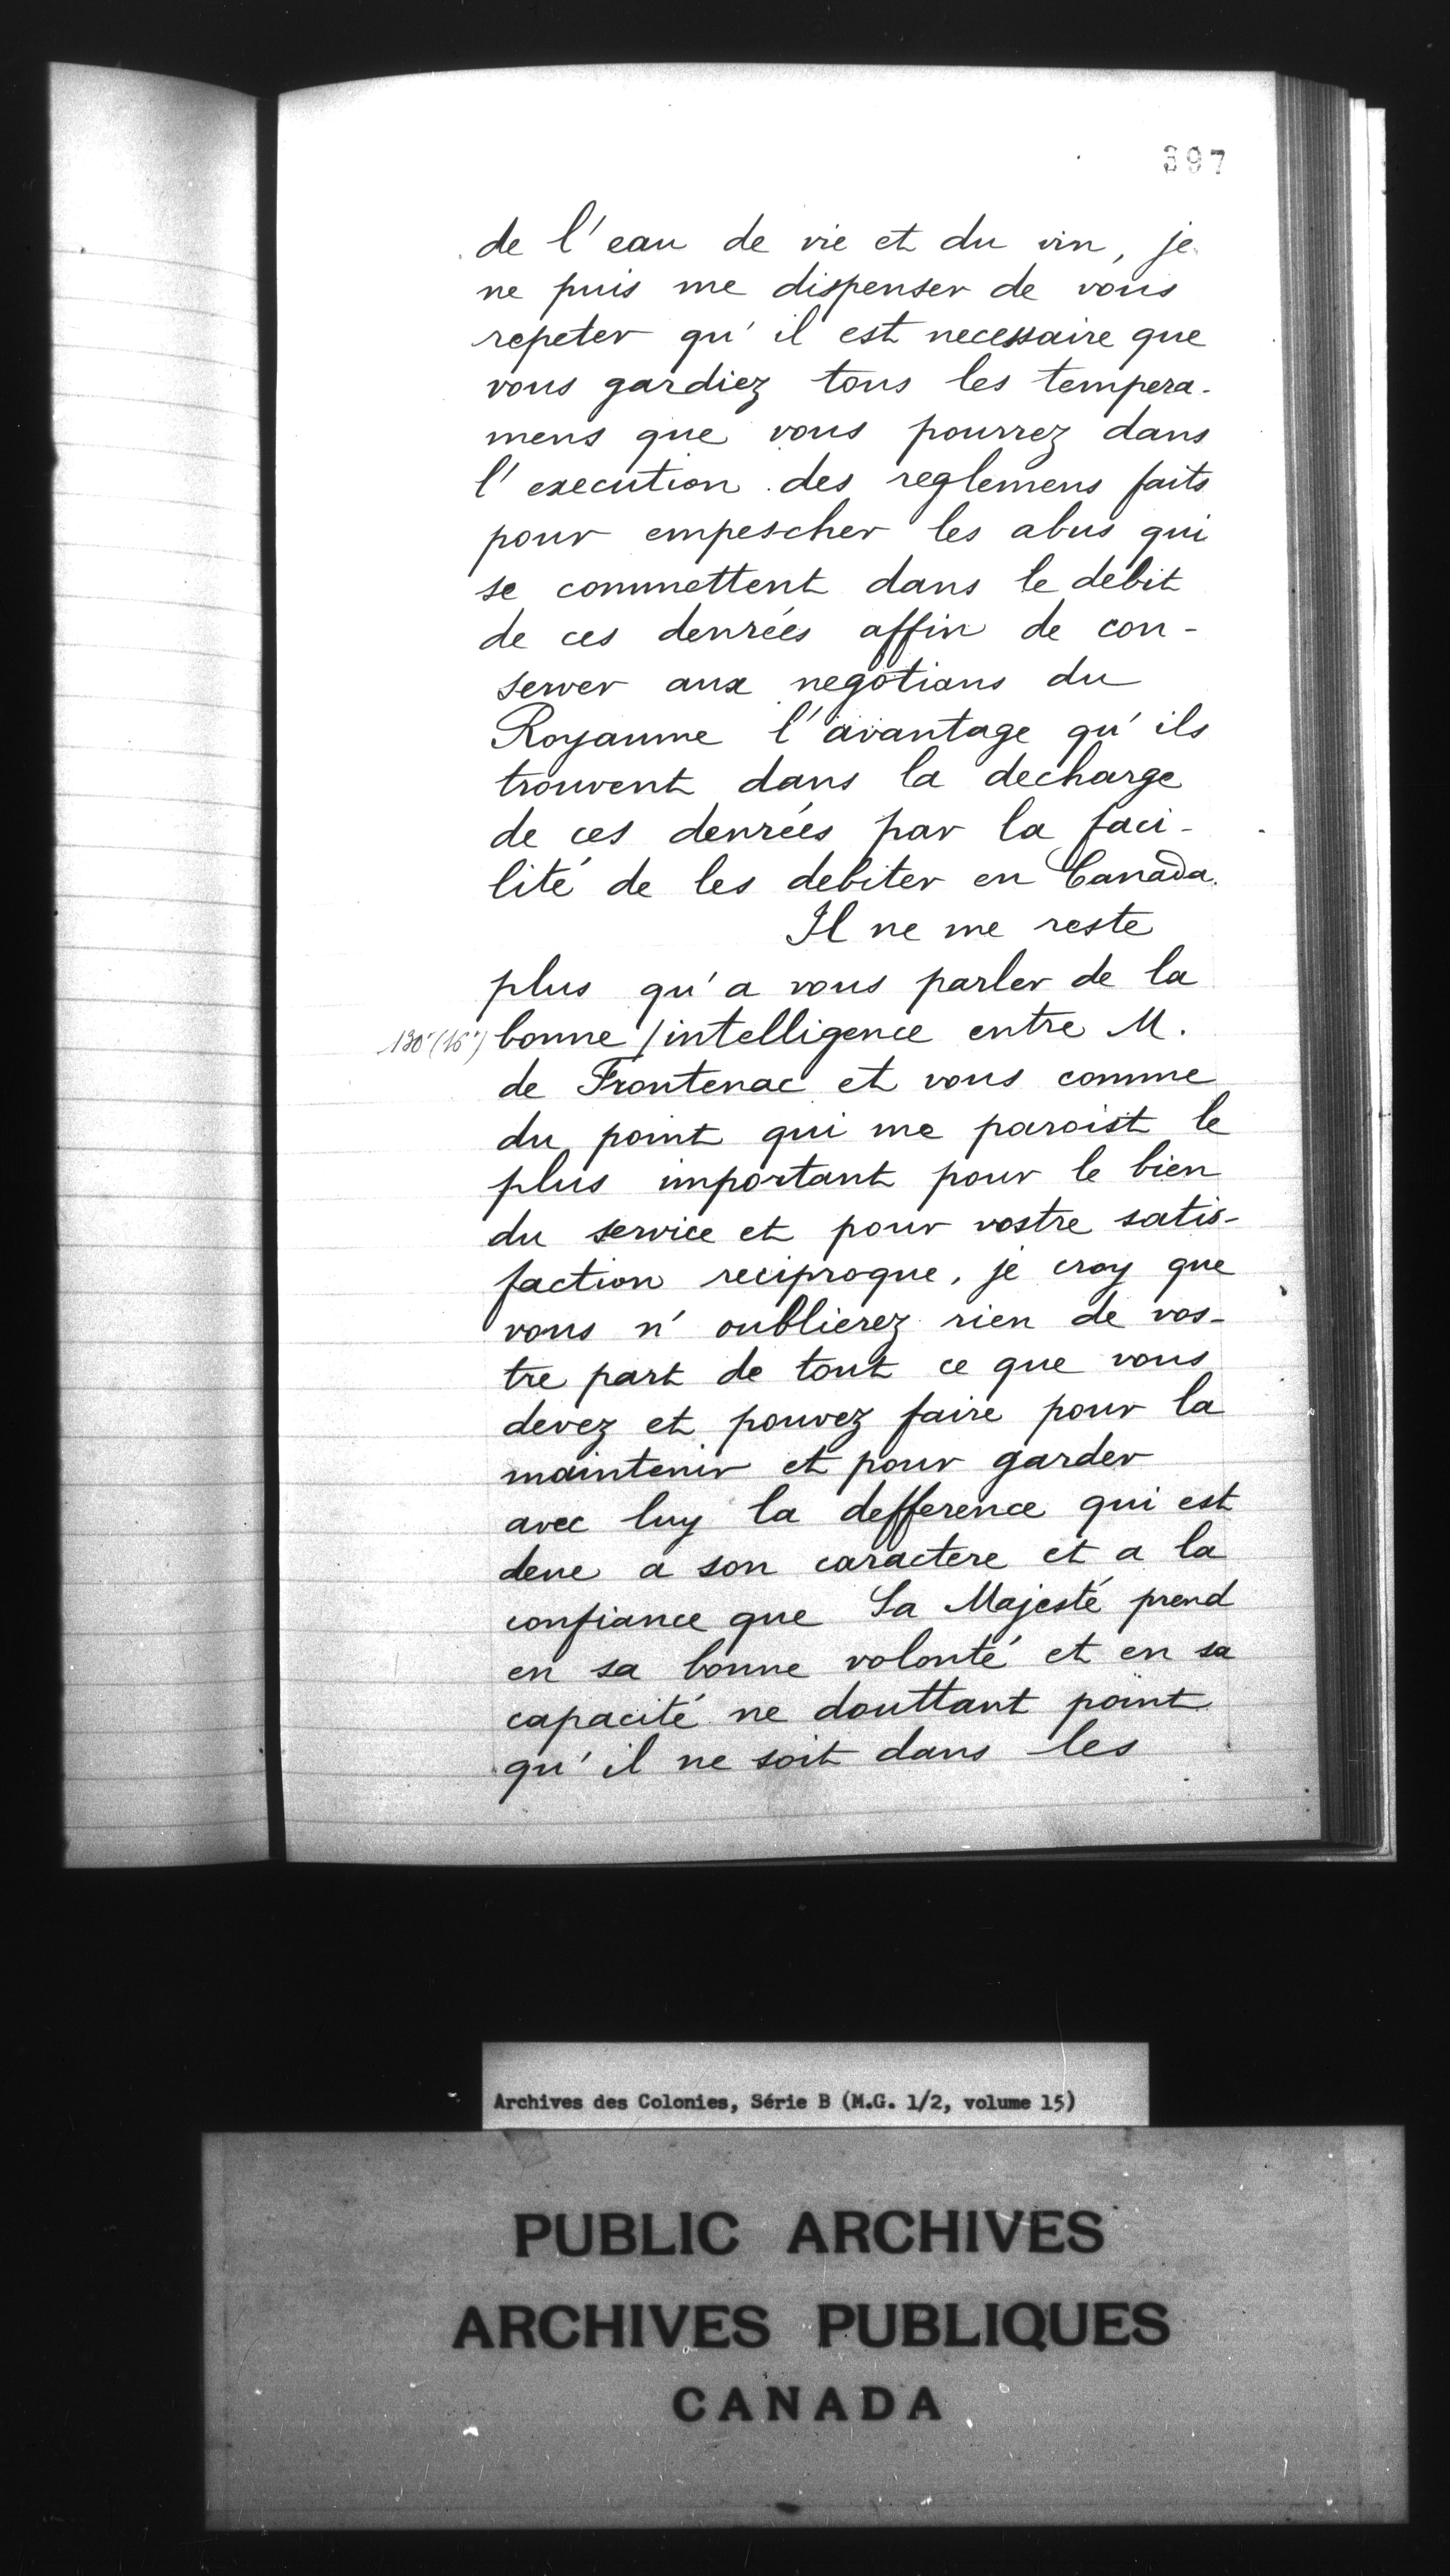 397
de l'eau de vie et du vin, je
ne puis me dispenser de vous
repeter qu'il est necessaire que
vous gardiez tous les tempera-
mens que vous pourrez dans
l'execution des reglemens faits
pour empescher les abus qui
se commettent dans le debit
de ces denrées affin de con-
server aux negotians du
Royaume l'avantage qu'ils
trouvent dans la decharge
de ces denrées par la faci-
lité de les debiter en Canada.
Il ne me reste
plus qu'a vous parler de la
bonne / intelligence entre M.
de Frontenac et vous comme
du point qui me paroist le
plus important pour le bien
du service et pour vostre satis-
faction reciproque, je croy que
vous n'oublierez rien de vos-
tre part de tout ce que vous
devez et pouvez faire pour la
maintenir et pour garder
avec luy la defference qui est
deue a son caractere et a la
confiance que Sa Majesté prend
en sa bonne volonté et en sa
capacité ne douttant point
qu'il ne soit dans les
Archives des Colonies, Série B (M.G. 1/2, volume 15)
PUBLIC ARCHIVES
ARCHIVES PUBLIQUES
CANADA